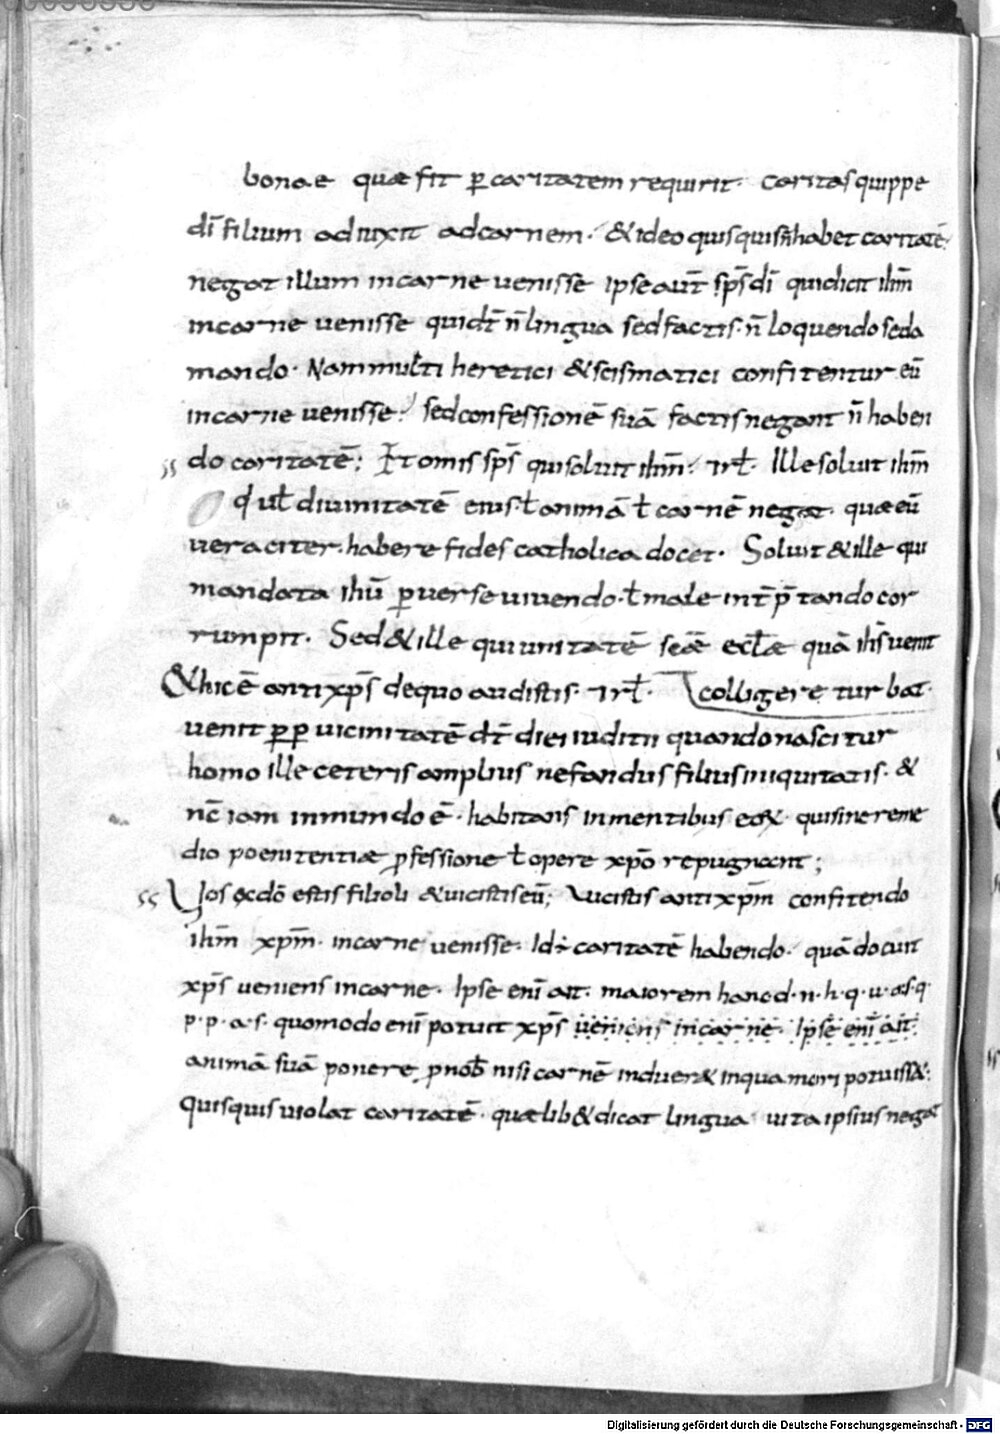 bonae quae fit p̱ caritatem requirit. Caritas quippe
dī filium adiuxit ad carnem. & ideo quisquis ñ habet caritatē.
negat illum in carne uenisse ipse aut̄ sp̄s dī qui dicit ihm̄
in carne uenisse qui dt̄ ñ lingua sed factis. ñ loquendo sed a
mando. Nam multi heretici & scismatici confitentur eū
in carne uenisse. sed confessionē suā factis negant ñ haben
do caritatē; Et omis sp̄s qui soluit ihm̄. & rł. Ille soluit ihm̄
q̇ uł diuinitatē eius. ł animā ł carnē negat. quae eū
ueraciter habere fides catholica docet. Soluit & ille qui
mandata ihū p̱uerse uiuendo. ł male int̄p̄tando cor
rumpit. Sed & ille qui unitatē scāē eccłae quā ihs̄ uenit
colligere turbat.
& hic ē antixp̄s de quo audistis. & rł.
uenit p̱p uicinitatē dt̄ diei iuditii quando nascitur
homo ille ceteris amplius nefandus filius iniquitatis. &
nc̄ iam in mundo ē. habitans in mentibus eoꝝ. qui sine reme
dio poenitentiae ꝓfessione ł opere xp̄o repugnant;
Uos ex dō estis filioli & uicistis eū; Uicistis antixp̄m confitendo
ihm̄ xp̄m. in carne uenisse. Id ÷ caritatē habendo. quā docuit
xp̄s ueniens in carne. Ipse enī ait. maiorem hanc d. n. h. q. u. a. s. q.
p. p. a. s. quomodo enī potuit xp̄s ueniens in carne. Ipse enī ait.
animā suā ponere ꝓ nob̄ nisi carnē induer& in qua mori potuiss&.
Quisquis uiolat caritatē. quaelib& dicat lingua uita ipsius negat
Digitalisierung gefördert durch die Deutsche Forschungsgemeinschaft - DFG